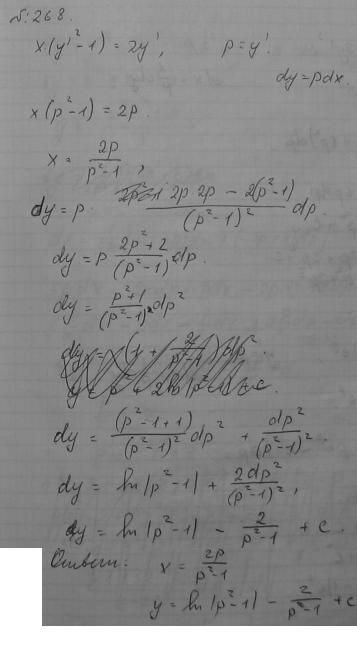 № 268.
x(y'²-1) = 2y', p = y'.
dy = pdx.
x(p²-1) = 2p.
x = 2p/(p²-1),
dy = p · (2p·2p - 2(p²-1))/(p²-1)² dp
dy = p (2p²+2)/(p²-1)² dp.
dy = (p²+1)/(p²-1)² dp²
dy = (p²-1+1)/(p²-1)² dp² + dp²/(p²-1)².
dy = ln|p²-1| + 2dp²/(p²-1)²,
y = ln|p²-1| - 2/(p²-1) + c.
Ответ: x = 2p/(p²-1)
y = ln|p²-1| - 2/(p²-1) + c